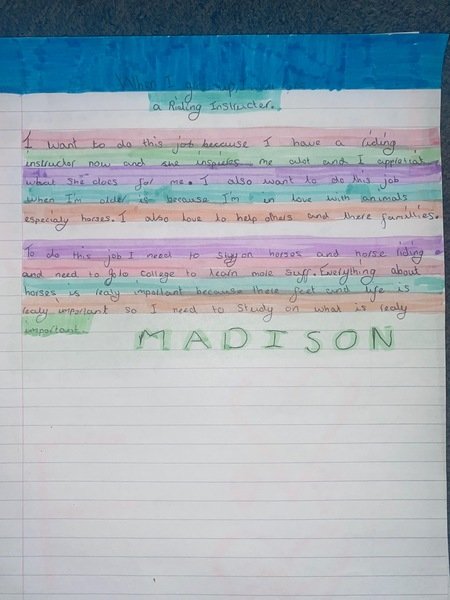 When I grow up
a Riding Instructer.
I want to do this job because I have a riding
instructor now and she inspires me alot and I appreciat
what she does for me. I also want to do this job
when I'm older is because I'm in love with animals
especialy horses. I also love to help others and there families.
To do this job I need to on horses and horse riding
and need to go to college to learn more suff. Everything about
horses is realy important because there feet and life is
realy important so I need to study on what is realy
important.
MADISON